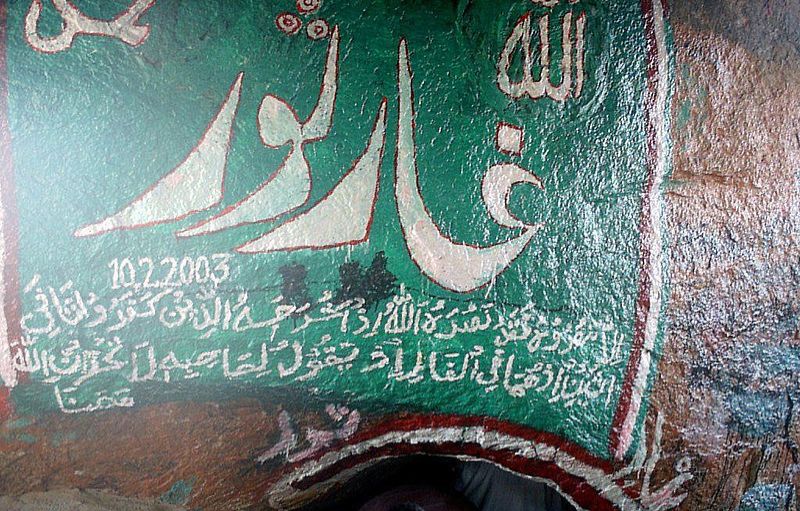 الله محمد
غار ثور
10.2.2003
الا تنصروه فقد نصره الله اذ اخرجه الذين كفرو ثاني
اثنين اذ هما في الغار اذ يقول لصاحبه لا تحزن ان الله
معنا
غار ثور